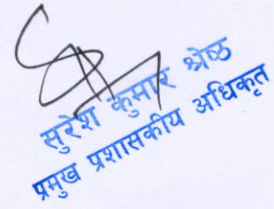 सुरेश कुमार श्रेष्ठ
प्रमुख प्रशासकीय अधिकृत